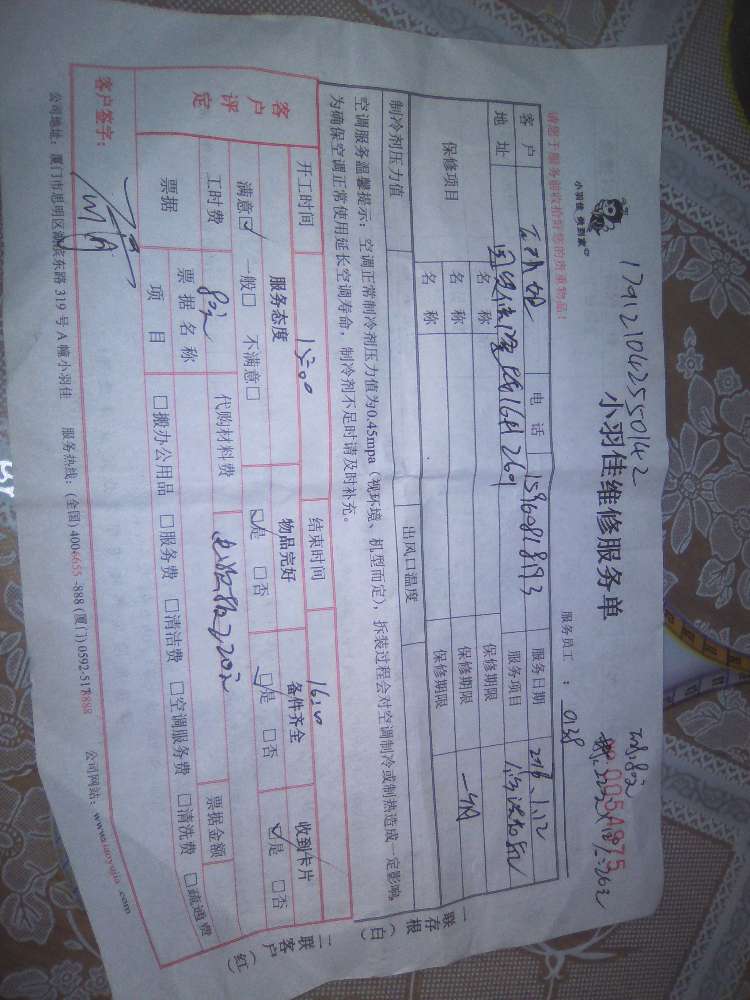 179121042550142
小羽佳 俏到家
小羽佳维修服务单
005A975
请您于服务前收拾好您的贵重物品！
服务员工：0138
客户 电话 15960818193 服务日期 2016.1.12
地址 服务项目
保修项目 名称 保修期限
名称 保修期限 一个月
名称 保修期限
制冷剂压力值 出风口温度
空调服务温馨提示：空调正常制冷剂压力值为0.45mpa（视环境、机型而定），拆装过程会对空调制冷或制热造成一定影响，
为确保空调正常使用延长空调寿命，制冷剂不足时请及时补充。
开工时间 15:00 结束时间 16:00
客户评定 服务态度 物品完好 备件齐全 收到卡片
满意☑ 一般□ 不满意□ ☑是 □否 ☑是 □否 ☑是 □否
工时费 80元 代购材料费
票据 票据名称 票据金额
项目 □搬办公用品 □服务费 □清洁费 □空调服务费 □清洗费 □疏通费
客户签字：
公司地址：厦门市思明区湖滨东路319号A幢小羽佳 服务热线：(全国) 4006-655-888 (厦门) 0592-5178888 公司网站：www.xiaoyujia.com
一联存根（白）
二联客户（红）